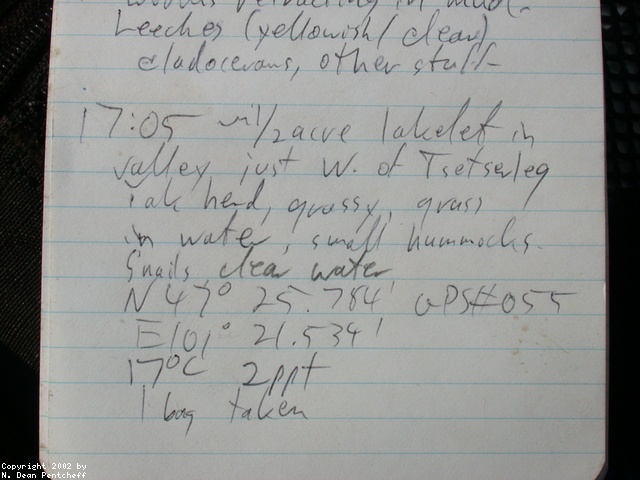 worms retracting in mud.
Leeches (yellowish/clear)
cladocerans, other stuff
17:05 ~1/2 acre lakelet in
valley just W. of Tsetserleg
Yak herd, grassy, grass
in water, small hummocks.
Snails, clear water
N 47° 25.784' GPS#055
E101° 21.534'
17°C 2ppt
1 bag taken
Copyright 2002 by
N. Dean Pentcheff